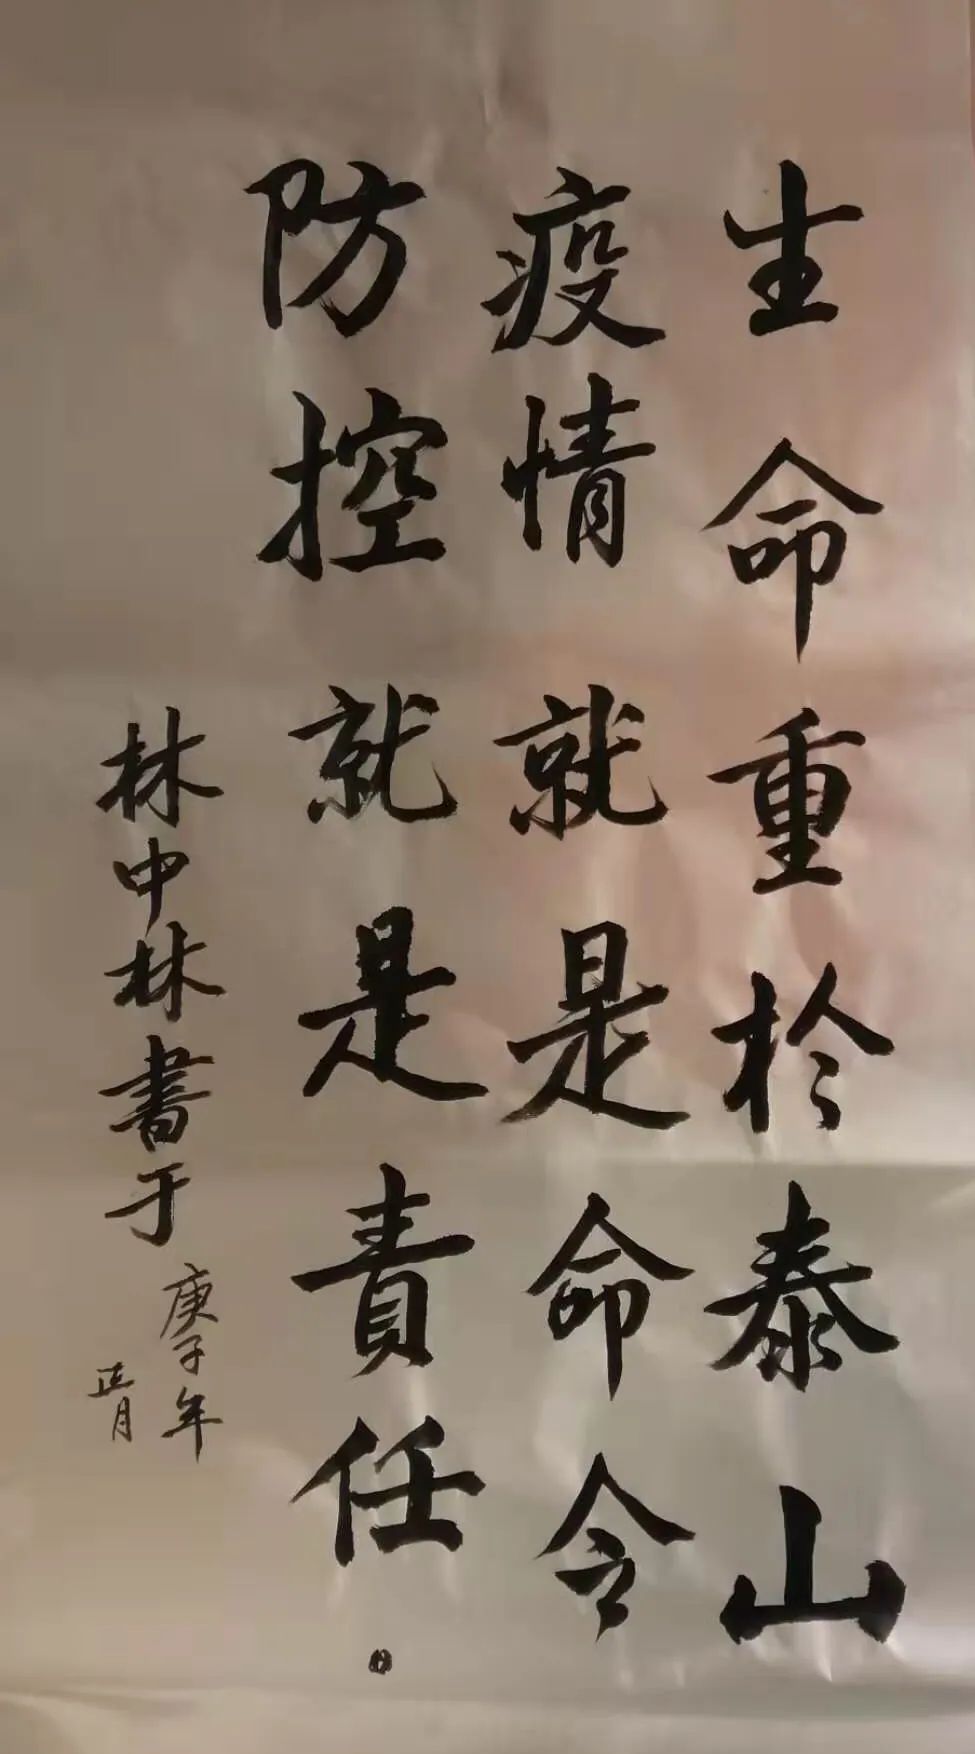 生命重於泰山
疫情就是命令
防控就是責任。
林中林書于
庚子年
正月